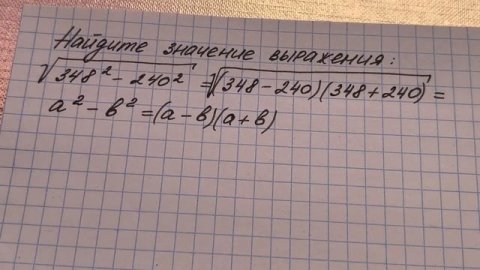 Найдите значение выражения:
√348² - 240² = √(348 - 240)(348 + 240) =
a² - b² = (a - b)(a + b)